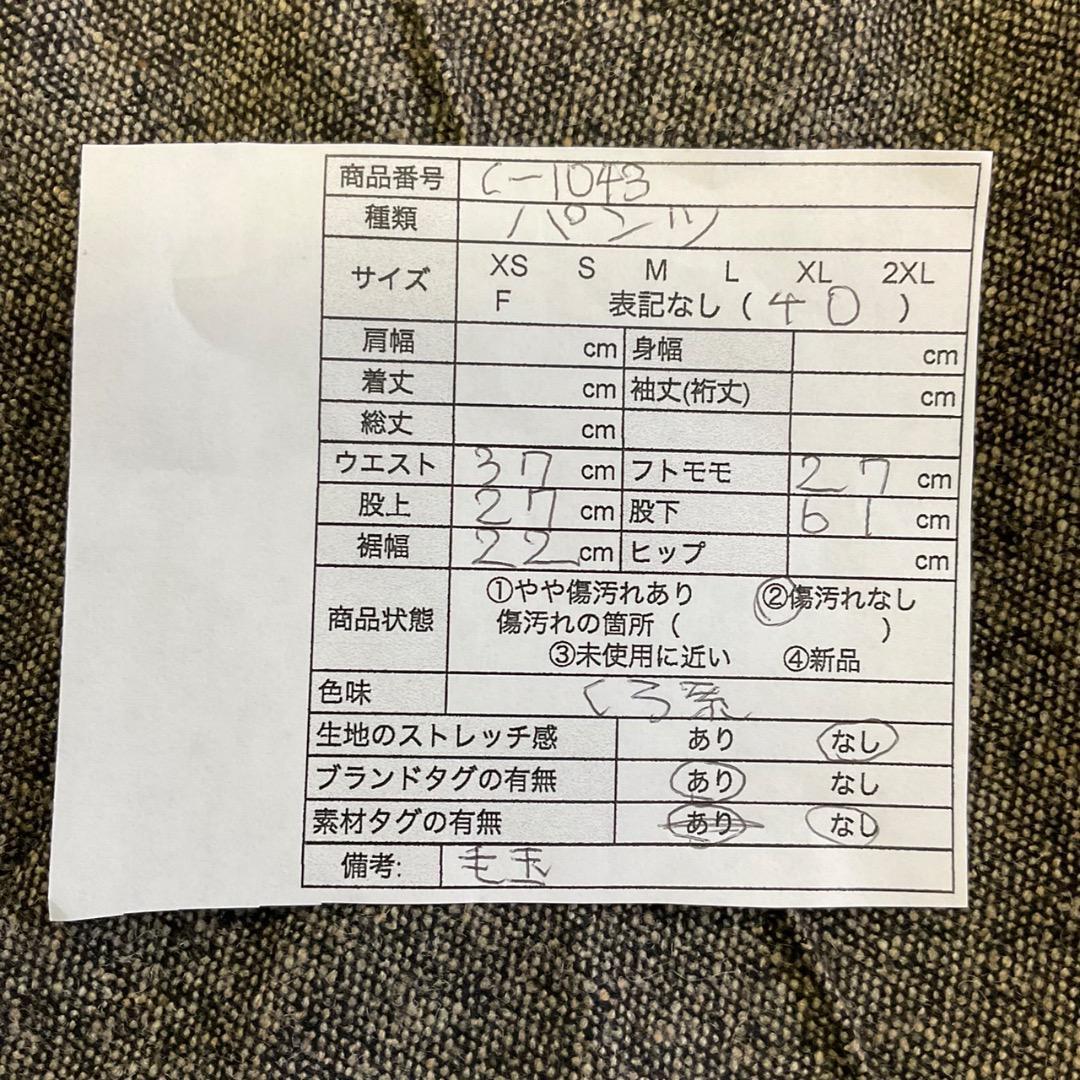 商品番号 C-1043
種類 パンツ
サイズ XS S M L XL 2XL
F 表記なし ( 40 )
肩幅 cm 身幅 cm
着丈 cm 袖丈(裄丈) cm
総丈 cm
ウエスト 37 cm フトモモ 27 cm
股上 27 cm 股下 61 cm
裾幅 22 cm ヒップ cm
商品状態 ①やや傷汚れあり ②傷汚れなし
傷汚れの箇所 ( )
③未使用に近い ④新品
色味 くろ系
生地のストレッチ感 あり なし
ブランドタグの有無 あり なし
素材タグの有無 あり なし
備考: 毛玉